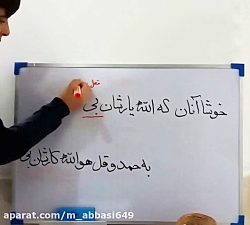 فعل
خوشا آنان که الله یارشان بی
به حمد و قل هو الله کارشان بی
aparat.com/m_abbasi649